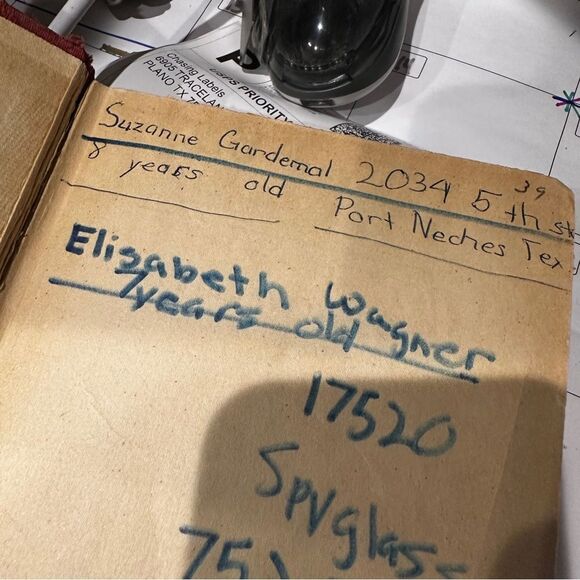 Chasing Labels
8905 TRACELAN
PLANO TX 7
USPS PRIORITY
39
Suzanne Gardemal 2034 5th st
8 years old Port Neches Tex
Elizabeth Wagner
7years old
17520
Spyglass
75